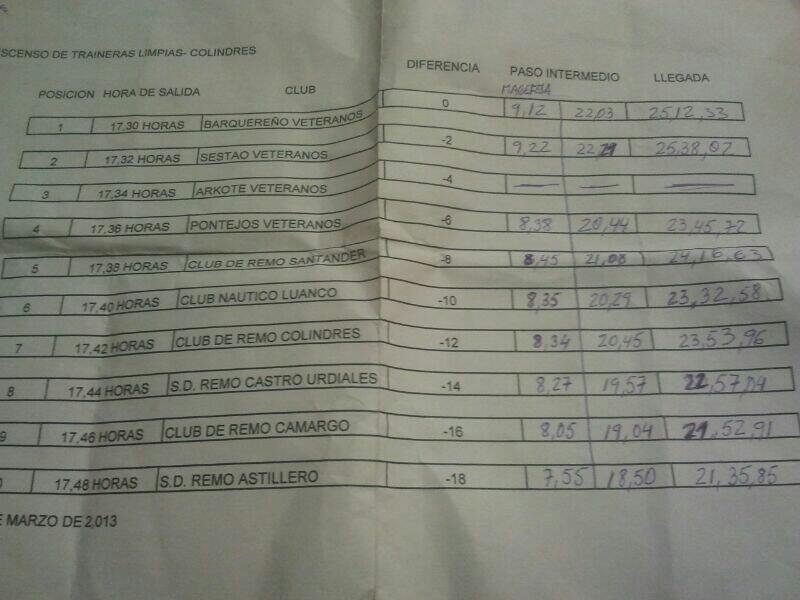 SCENSO DE TRAINERAS LIMPIAS- COLINDRES
POSICION HORA DE SALIDA CLUB DIFERENCIA PASO INTERMEDIO LLEGADA
1 17,30 HORAS BARQUEREÑO VETERANOS 0 9,12 22,03 25,12,33
2 17,32 HORAS SESTAO VETERANOS -2 9,22 25,38,02
3 17,34 HORAS ARKOTE VETERANOS -4
4 17,36 HORAS PONTEJOS VETERANOS -6 8,38 20,44 23,45,72
5 17,38 HORAS CLUB DE REMO SANTANDER -8 8,45 21,08 24,16,63
6 17,40 HORAS CLUB NAUTICO LUANCO -10 8,35 20,29 23,32,58
7 17,42 HORAS CLUB DE REMO COLINDRES -12 8,34 20,45 23,53,96
8 17,44 HORAS S.D. REMO CASTRO URDIALES -14 8,27 19,57
9 17,46 HORAS CLUB DE REMO CAMARGO -16 8,05 19,04 21,52,91
17,48 HORAS S.D. REMO ASTILLERO -18 7,55 18,50 21,35,85
E MARZO DE 2,013